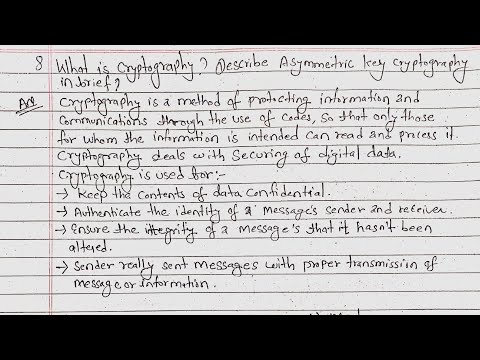 8 What is Cryptography? Describe Asymmeitric key Cryptography
in brief?
Ans Cryptography is a method of protecting information and
Communications through the use of codes, so that only those
for whom the information is intended can read and process it.
Cryptography deals with Securing of digital data.
Cryptography is used for:-
→ Keep the contents of data Confidential.
→ Authenticate the identity of a message's sender and receiver.
→ Ensure the integrity of a message's that it hasn't been
altered.
→ Sender really sent messages with proper transmission of
message or information.